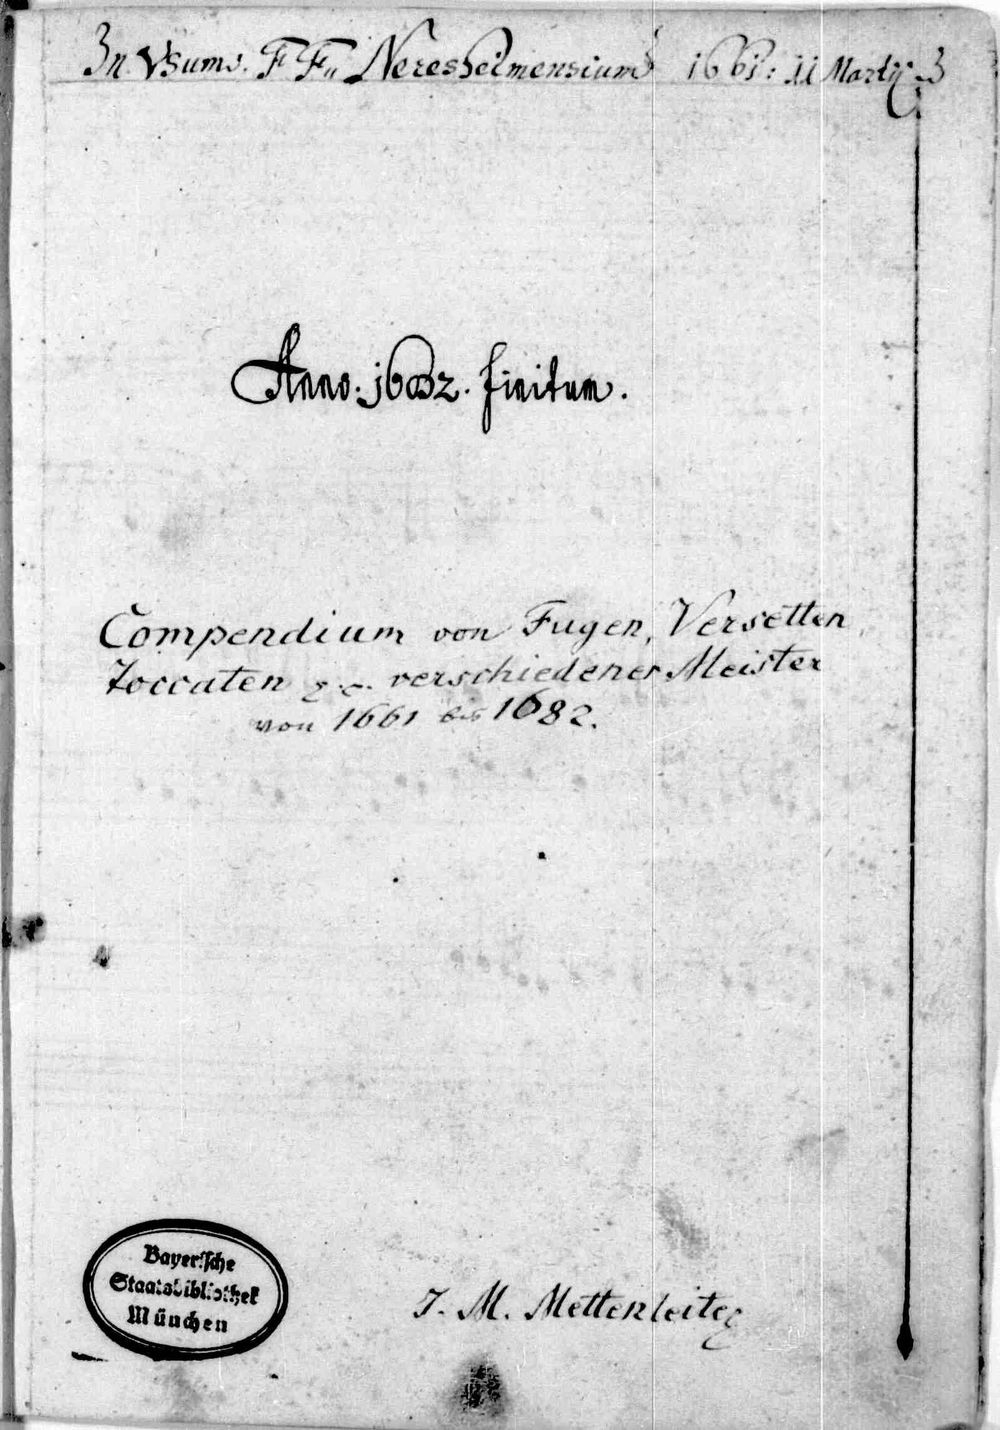 In Vsum. F F„ Neresheimensium 1661: 11 Martij.
Anno. 1682. finitum.
Compendium von Fugen, Versetten
Toccaten &.c. verschiedener Meister
von 1661 bis 1682.
Bayerische
Staatsbibliothek
München
J. M. Mettenleiter